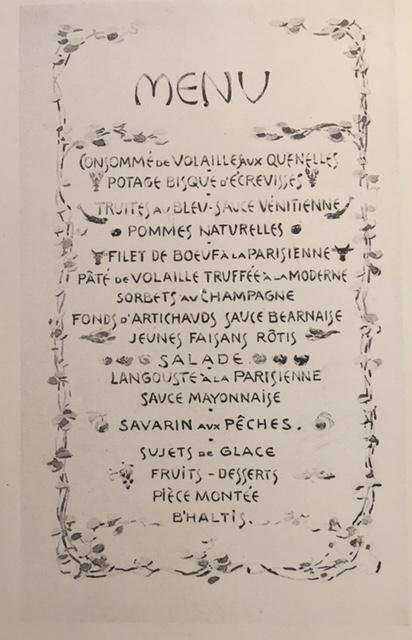 MENU
CONSOMMÉ DE VOLAILLES AUX QUENELLES
POTAGE BISQUE D'ÉCREVISSES
TRUITES AU BLEU-SAUCE VÉNITIENNE
POMMES NATURELLES
FILET DE BOEUF À LA PARISIENNE
PÂTÉ DE VOLAILLE TRUFFÉE À LA MODERNE
SORBETS AU CHAMPAGNE
FONDS D'ARTICHAUDS SAUCE BEARNAISE
JEUNES FAISANS RÔTIS
SALADE
LANGOUSTE À LA PARISIENNE
SAUCE MAYONNAISE
SAVARIN AUX PÊCHES.
SUJETS DE GLACE
FRUITS - DESSERTS
PIÈCE MONTÉE
B'HALTIS.